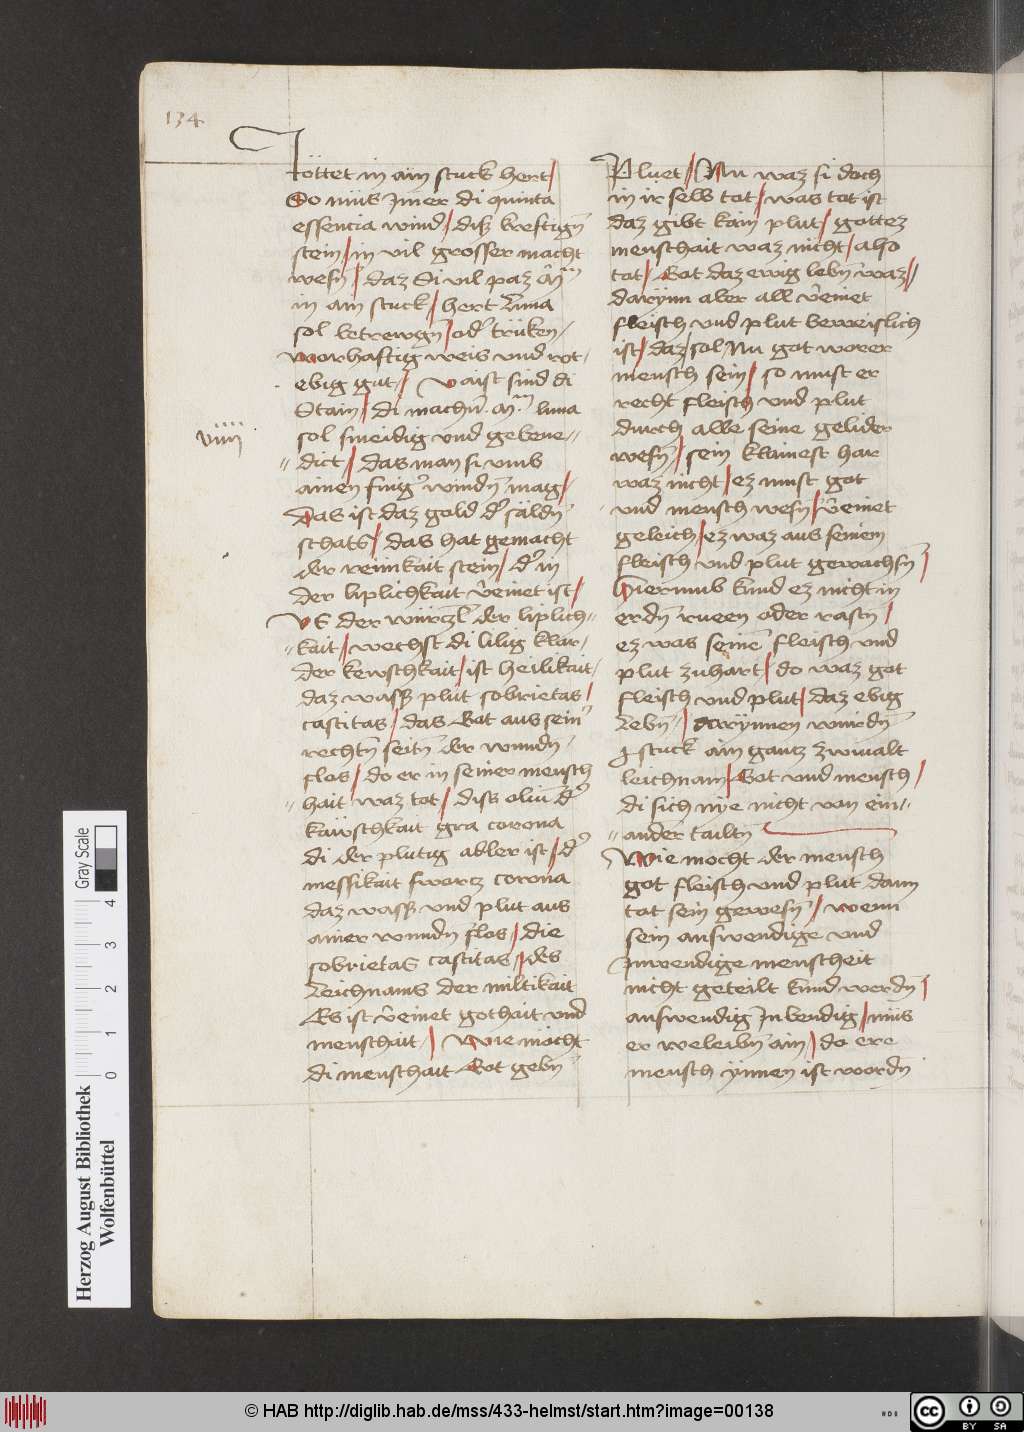 134
töttet in ain stuck hert /
So müs Jmer di quinta
essencia wind / diß kreftign̄
stein / in vil grosser macht
wesn̄ / daz Si vil paz
in ain stuck / hert Luna
sol betrewgn̄ / od' trüken /
worhaftig weis vnd rot /
ebig gut / vaist sind di
Stain / di machn̄ luna
sol smeidig vnd gebene //
viiij
// dict / das man si vmb
ainen fing' windn̄ mag /
Das ist daz gold d' säldn̄
schats / das hat gemacht
der reinikait stein / d' in
der liplichkait v̄einet ist /
VS der würczl der liplich //
// kait / wechst di lilig klar /
der kewschkait / ist heilikait /
daz wasß plut sobrietas /
castitas / das Got aus sein̄
rechtn̄ seitn̄ der wundn̄ /
flos / do er in seiner mensch
// hait waz tot / diss d'
käwschkait gra corona
di der plutig adler ist / d'
messikait swarcz corona
daz wasß vnd plut aus
ainer wundn̄ flos / die
sobrietas castitas / des
Leichnams der miltikait
Es ist v̄einet gothait vnd
menschait / Wie möcht
di menschait Got gebn̄
Pluet / Nu waz si doch
in ir selb tot / was tot ist
daz gibt kain plut / gottez
menschait waz nicht / also
tot / Got daz ewig lebn̄ waz //
darynn aber all v̄einet
fleisch vnd plut beweislich
ist / daz sol / Nu got worer
mensch sein / so must er
recht fleisch vnd plut
durch alle seine gelider
wesn̄ / sein klainest har
waz nicht / ez must got
vnd mensch wesn̄ / v̄einet
geleich / ez waz aus seinem
fleisch vnd plut gewachsn̄ /
Hiermub kund ez nicht in
erdn̄ rueen oder rastn̄ /
ez was seinē fleisch vnd
plut zuhart / do waz got
fleisch vnd plut / daz ebig
Lebn̄ / darynnen wurdn̄
stuck ain gantz zwiualt
leichnam / Got vnd mensch /
di sich nye nicht von ein //
// ander tailtn̄
Wie mocht der mensch
got fleisch vnd plut dann
tot sein gewesn̄ / wenn
sein auswendige vnd
Jnwendige menscheit
nicht geteilt kund werdn̄ /
auswendig Jnbendig / müs
er beleibn̄ ain / do er
mensch ynnen ist wordn̄
Herzog August Bibliothek
Wolfenbüttel
0 1 2 3 4
Gray Scale
© HAB http://diglib.hab.de/mss/433-helmst/start.htm?image=00138
cc BY SA